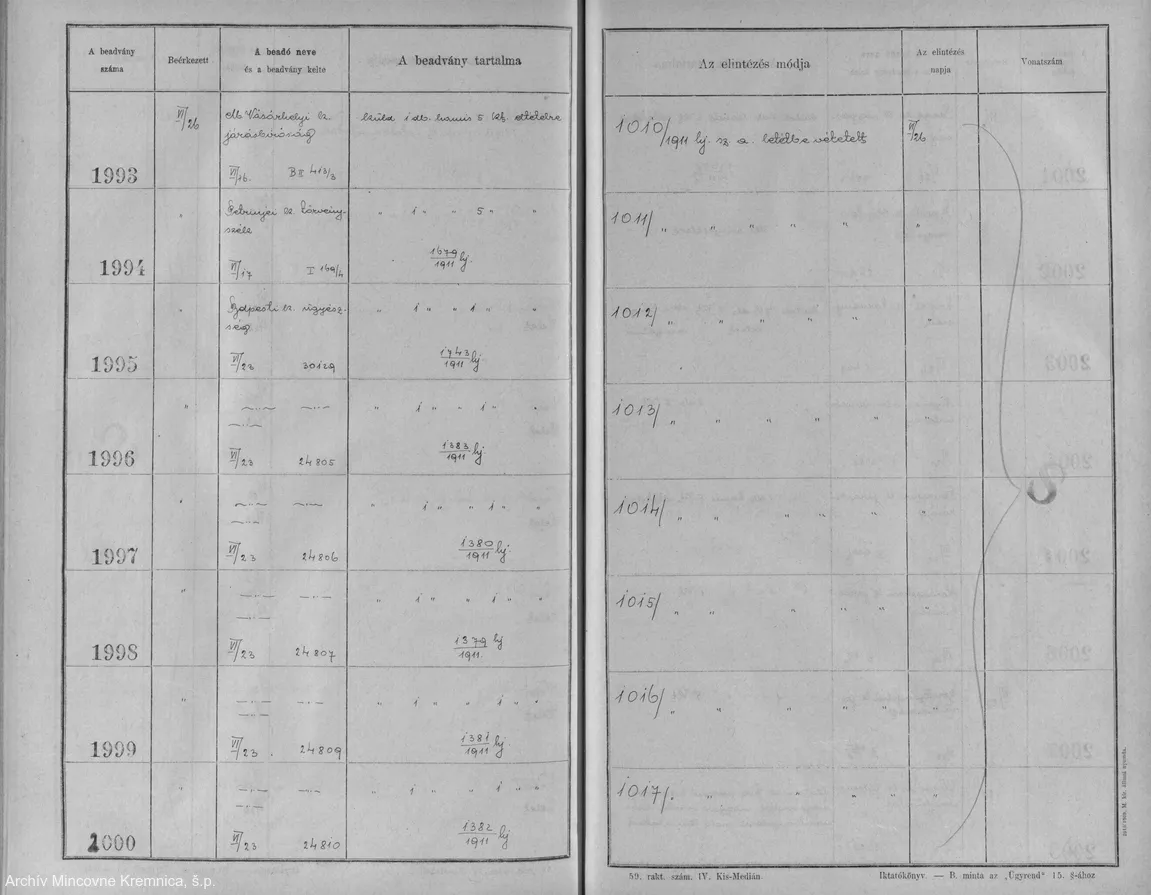 A beadvány száma
Beérkezett
A beadó neve és a beadvány kelte
A beadvány tartalma
Az elintézés módja
Az elintézés napja
Vonatszám
1993
VI/26
M Vásárhelyi kr járásbíróság
VI/16. B II 413/3
küld 1 db. hamis
1010/1911 lj. sz. a. letétbe vétetett
VI/26
1994
"
kr. törvényszék
VI/17 I 169/4
" 1 " " 5 " "
1679/1911 lj.
1011/ " " " " "
"
1995
"
Bdpesti kr. ügyészség
VI/23 30129
" 1 " " 1 " "
1743/1911 lj.
1012/ " " " " "
"
1996
"
—"— —"—
—"—
VI/23 24805
" 1 " " 1 " "
1383/1911 lj.
1013/ " " " " "
1997
"
—"— —"—
—"—
VI/23 24806
" 1 " " 1 " "
1380/1911 lj.
1014/ " " " " "
1998
"
—"— —"—
—"—
VI/23 24807
" 1 " " 1 " "
1379/1911. lj
1015/ " " " " "
1999
"
—"— —"—
—"—
VI/23. 24809
" 1 " " 1 " "
1381/1911 lj.
1016/ " " " " "
2000
"
—"— —"—
—"—
VI/23 24810
" 1 " " 1 " "
1382/1911 lj
1017/. " " " "
59. rakt. szám. IV. Kis-Medián.
Iktatókönyv — B. minta az „Ügyrend" 15. §-ához
Archív Mincovne Kremnica, š.p.